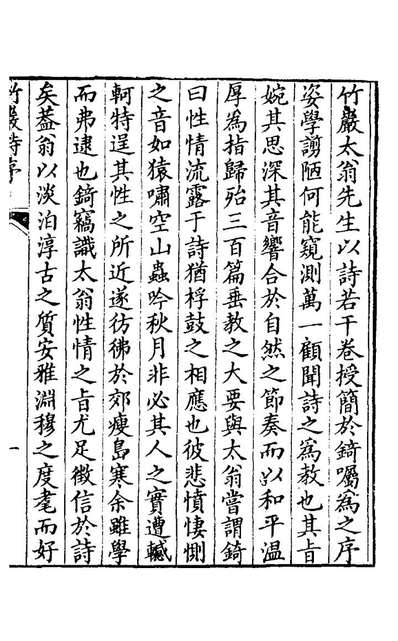 竹巖太翁先生以詩若干卷授簡於錡囑為之序
姿學謭陋何能窺測萬一顧聞詩之為教也其旨
婉其思深其音響合於自然之節奏而以和平溫
厚為指歸殆三百篇垂教之大要與太翁嘗謂錡
曰性情流露于詩猶桴鼓之相應也彼悲憤悽惻
之音如猿嘯空山蟲吟秋月非必其人之實遭轗
軻特逞其性之所近遂彷彿於郊瘦島寒余雖學
而弗逮也錡竊識太翁性情之旨尤足徵信於詩
矣葢翁以淡泊淳古之質安雅淵穆之度耄而好
竹巖詩序
一